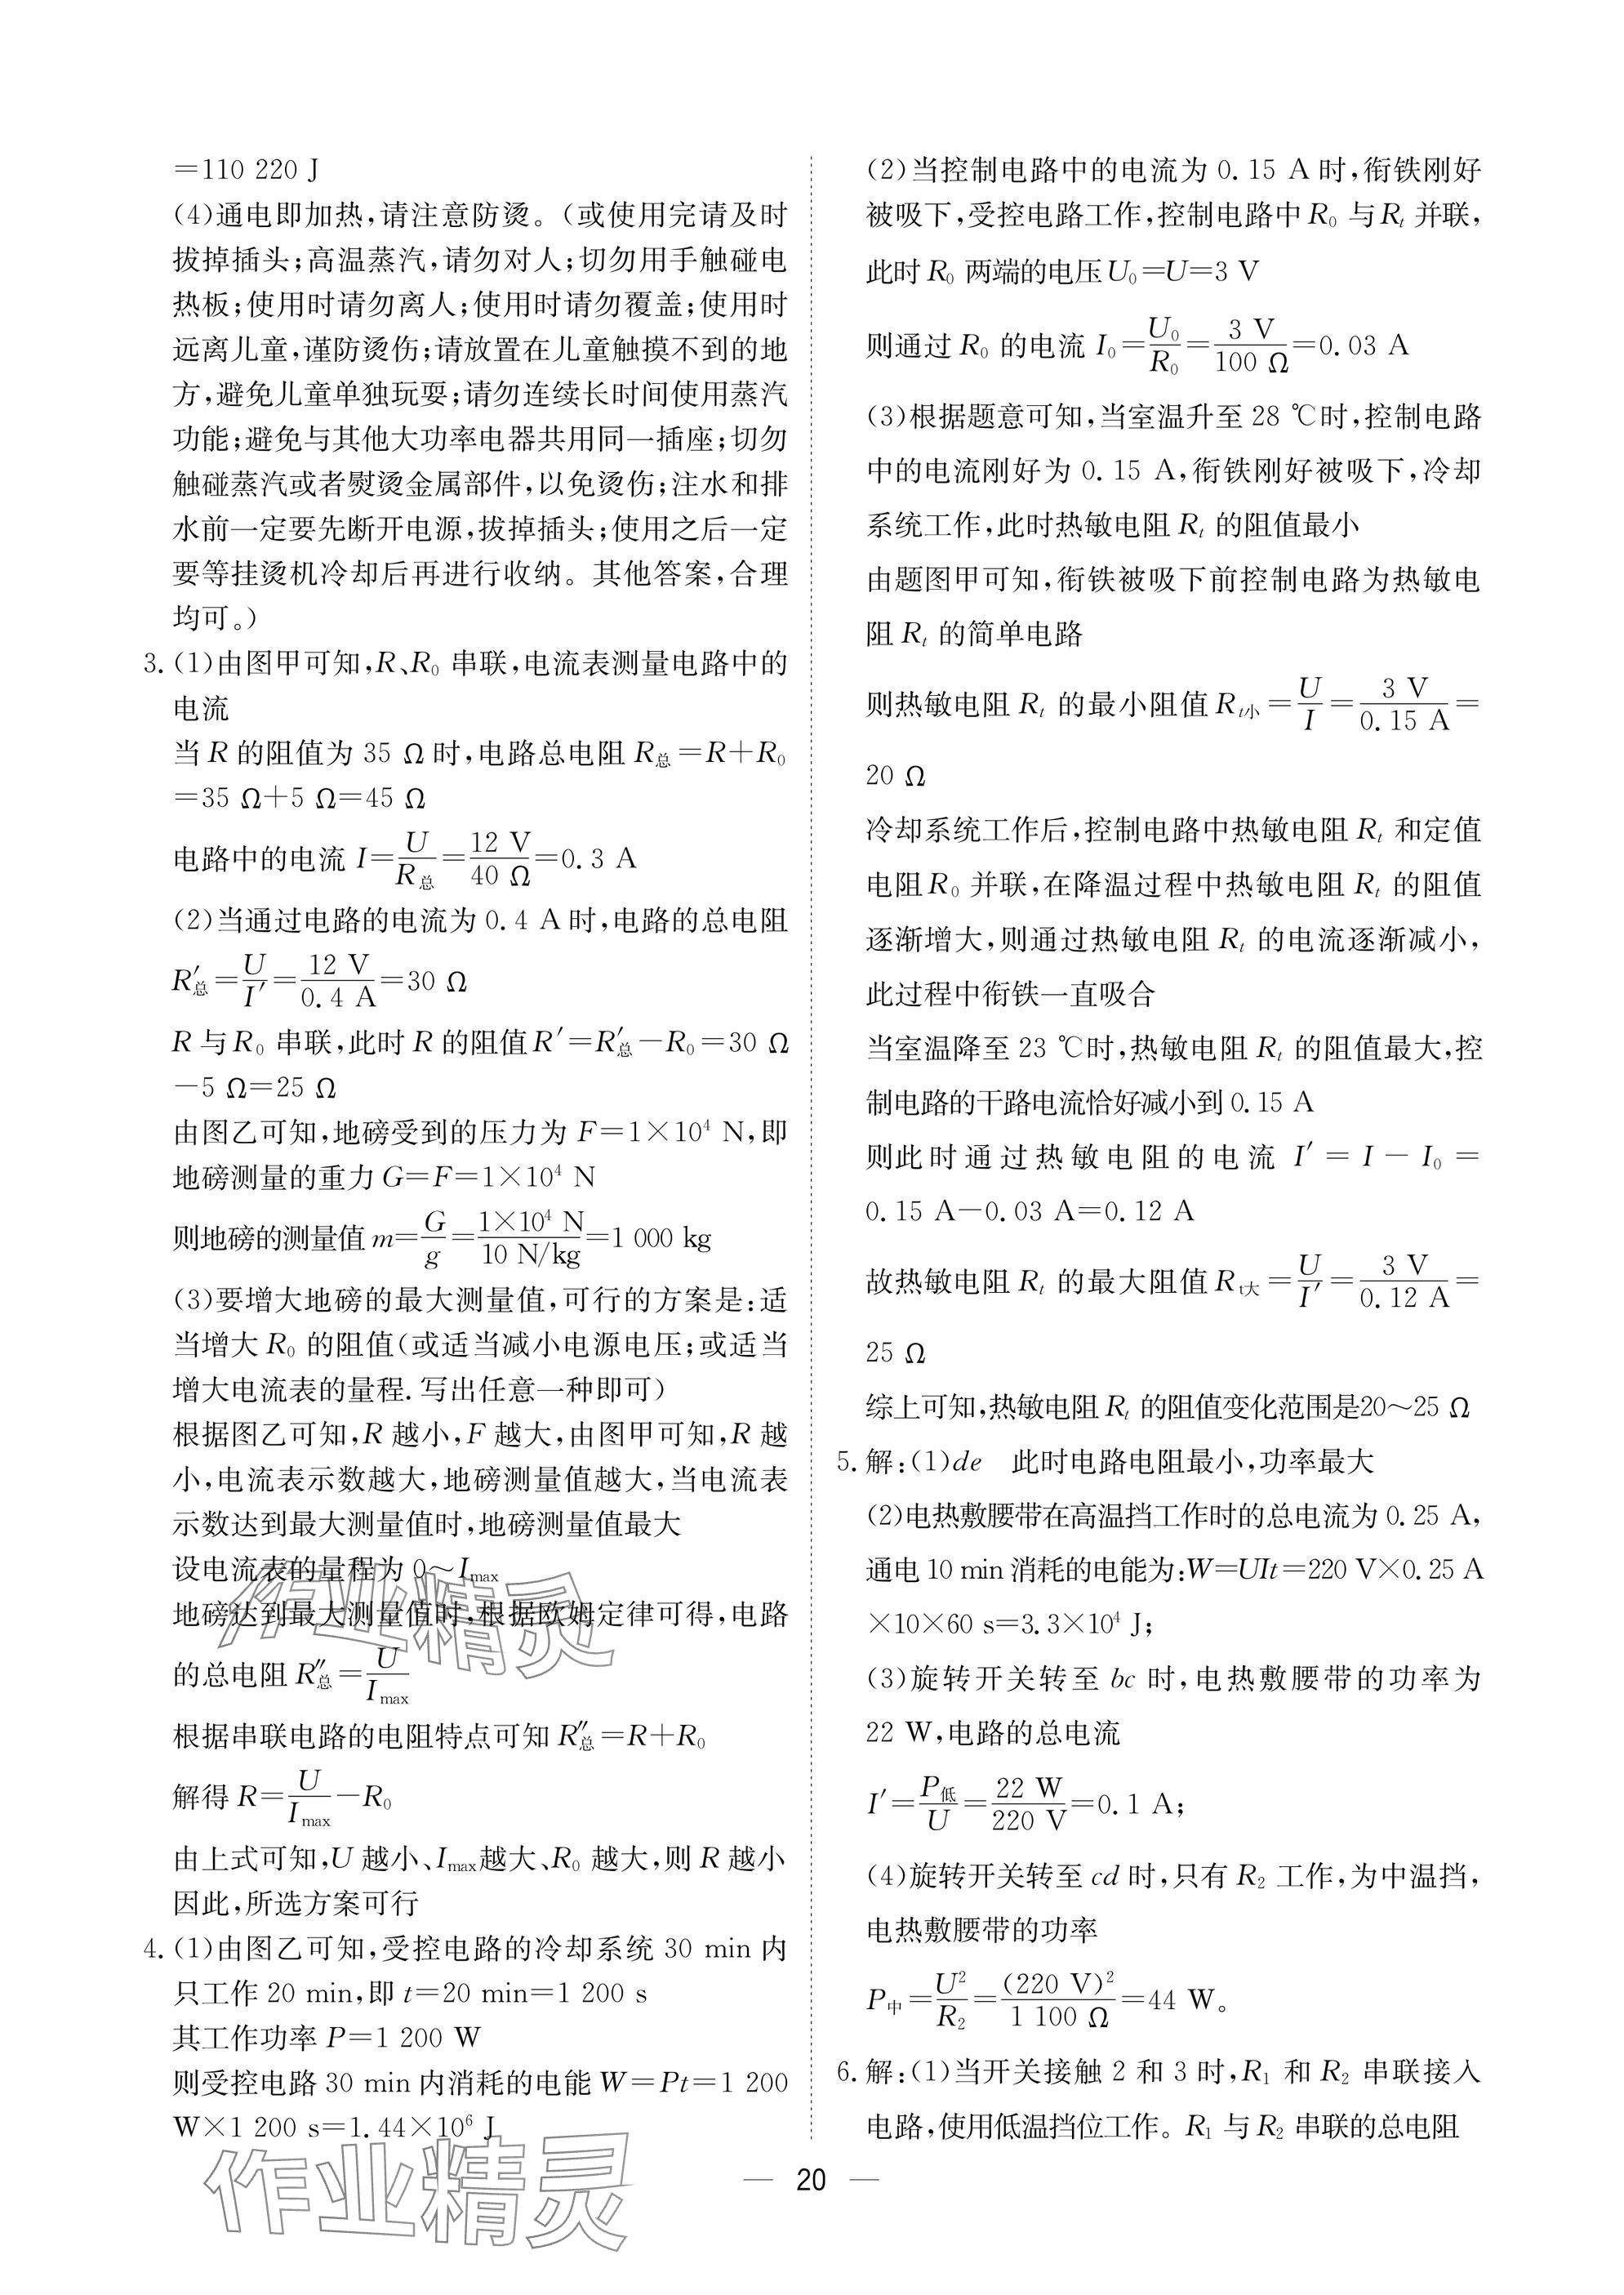 =110 220 J
(4)通电即加热,请注意防烫。(或使用完请及时
拔掉插头;高温蒸汽,请勿对人;切勿用手触碰电
热板;使用时请勿离人;使用时请勿覆盖;使用时
远离儿童,谨防烫伤;请放置在儿童触摸不到的地
方,避免儿童单独玩耍;请勿连续长时间使用蒸汽
功能;避免与其他大功率电器共用同一插座;切勿
触碰蒸汽或者熨烫金属部件,以免烫伤;注水和排
水前一定要先断开电源,拔掉插头;使用之后一定
要等挂烫机冷却后再进行收纳。其他答案,合理
均可。)
3.(1)由图甲可知,R、R₀ 串联,电流表测量电路中的
电流
当 R 的阻值为 35 Ω 时,电路总电阻 R总=R+R₀
=35 Ω+5 Ω=45 Ω
电路中的电流 I=U/R总=12 V/40 Ω=0.3 A
(2)当通过电路的电流为 0.4 A 时,电路的总电阻
R′总=U/I′=12 V/0.4 A=30 Ω
R 与 R₀ 串联,此时 R 的阻值 R′=R′总-R₀=30 Ω
-5 Ω=25 Ω
由图乙可知,地磅受到的压力为 F=1×10⁴ N,即
地磅测量的重力 G=F=1×10⁴ N
则地磅的测量值 m=G/g=1×10⁴ N/10 N/kg=1 000 kg
(3)要增大地磅的最大测量值,可行的方案是:适
当增大 R₀ 的阻值(或适当减小电源电压;或适当
增大电流表的量程.写出任意一种即可)
根据图乙可知,R 越小,F 越大,由图甲可知,R 越
小,电流表示数越大,地磅测量值越大,当电流表
示数达到最大测量值时,地磅测量值最大
设电流表的量程为 0～Imax
地磅达到最大测量值时,根据欧姆定律可得,电路
的总电阻 R″总=U/Imax
根据串联电路的电阻特点可知 R″总=R+R₀
解得 R=U/Imax-R₀
由上式可知,U 越小、Imax越大、R₀ 越大,则 R 越小
因此,所选方案可行
4.(1)由图乙可知,受控电路的冷却系统 30 min 内
只工作 20 min,即 t=20 min=1 200 s
其工作功率 P=1 200 W
则受控电路 30 min 内消耗的电能 W=Pt=1 200
W×1 200 s=1.44×10⁶ J
(2)当控制电路中的电流为 0.15 A 时,衔铁刚好
被吸下,受控电路工作,控制电路中 R₀ 与 Rt 并联,
此时 R₀ 两端的电压 U₀=U=3 V
则通过 R₀ 的电流 I₀=U₀/R₀=3 V/100 Ω=0.03 A
(3)根据题意可知,当室温升至 28 ℃时,控制电路
中的电流刚好为 0.15 A,衔铁刚好被吸下,冷却
系统工作,此时热敏电阻 Rt 的阻值最小
由题图甲可知,衔铁被吸下前控制电路为热敏电
阻 Rt 的简单电路
则热敏电阻 Rt 的最小阻值 Rt小=U/I=3 V/0.15 A=
20 Ω
冷却系统工作后,控制电路中热敏电阻 Rt 和定值
电阻 R₀ 并联,在降温过程中热敏电阻 Rt 的阻值
逐渐增大,则通过热敏电阻 Rt 的电流逐渐减小,
此过程中衔铁一直吸合
当室温降至 23 ℃时,热敏电阻 Rt 的阻值最大,控
制电路的干路电流恰好减小到 0.15 A
则此时通过热敏电阻的电流 I′=I-I₀=
0.15 A-0.03 A=0.12 A
故热敏电阻 Rt 的最大阻值 Rt大=U/I′=3 V/0.12 A=
25 Ω
综上可知,热敏电阻 Rt 的阻值变化范围是20～25 Ω
5.解:(1)de 此时电路电阻最小,功率最大
(2)电热敷腰带在高温挡工作时的总电流为 0.25 A,
通电 10 min 消耗的电能为:W=UIt=220 V×0.25 A
×10×60 s=3.3×10⁴ J;
(3)旋转开关转至 bc 时,电热敷腰带的功率为
22 W,电路的总电流
I′=P低/U=22 W/220 V=0.1 A;
(4)旋转开关转至 cd 时,只有 R₂ 工作,为中温挡,
电热敷腰带的功率
P中=U²/R₂=(220 V)²/1 100 Ω=44 W。
6.解:(1)当开关接触 2 和 3 时,R₁ 和 R₂ 串联接入
电路,使用低温挡位工作。R₁ 与 R₂ 串联的总电阻
— 20 —
作业精灵
作业精灵